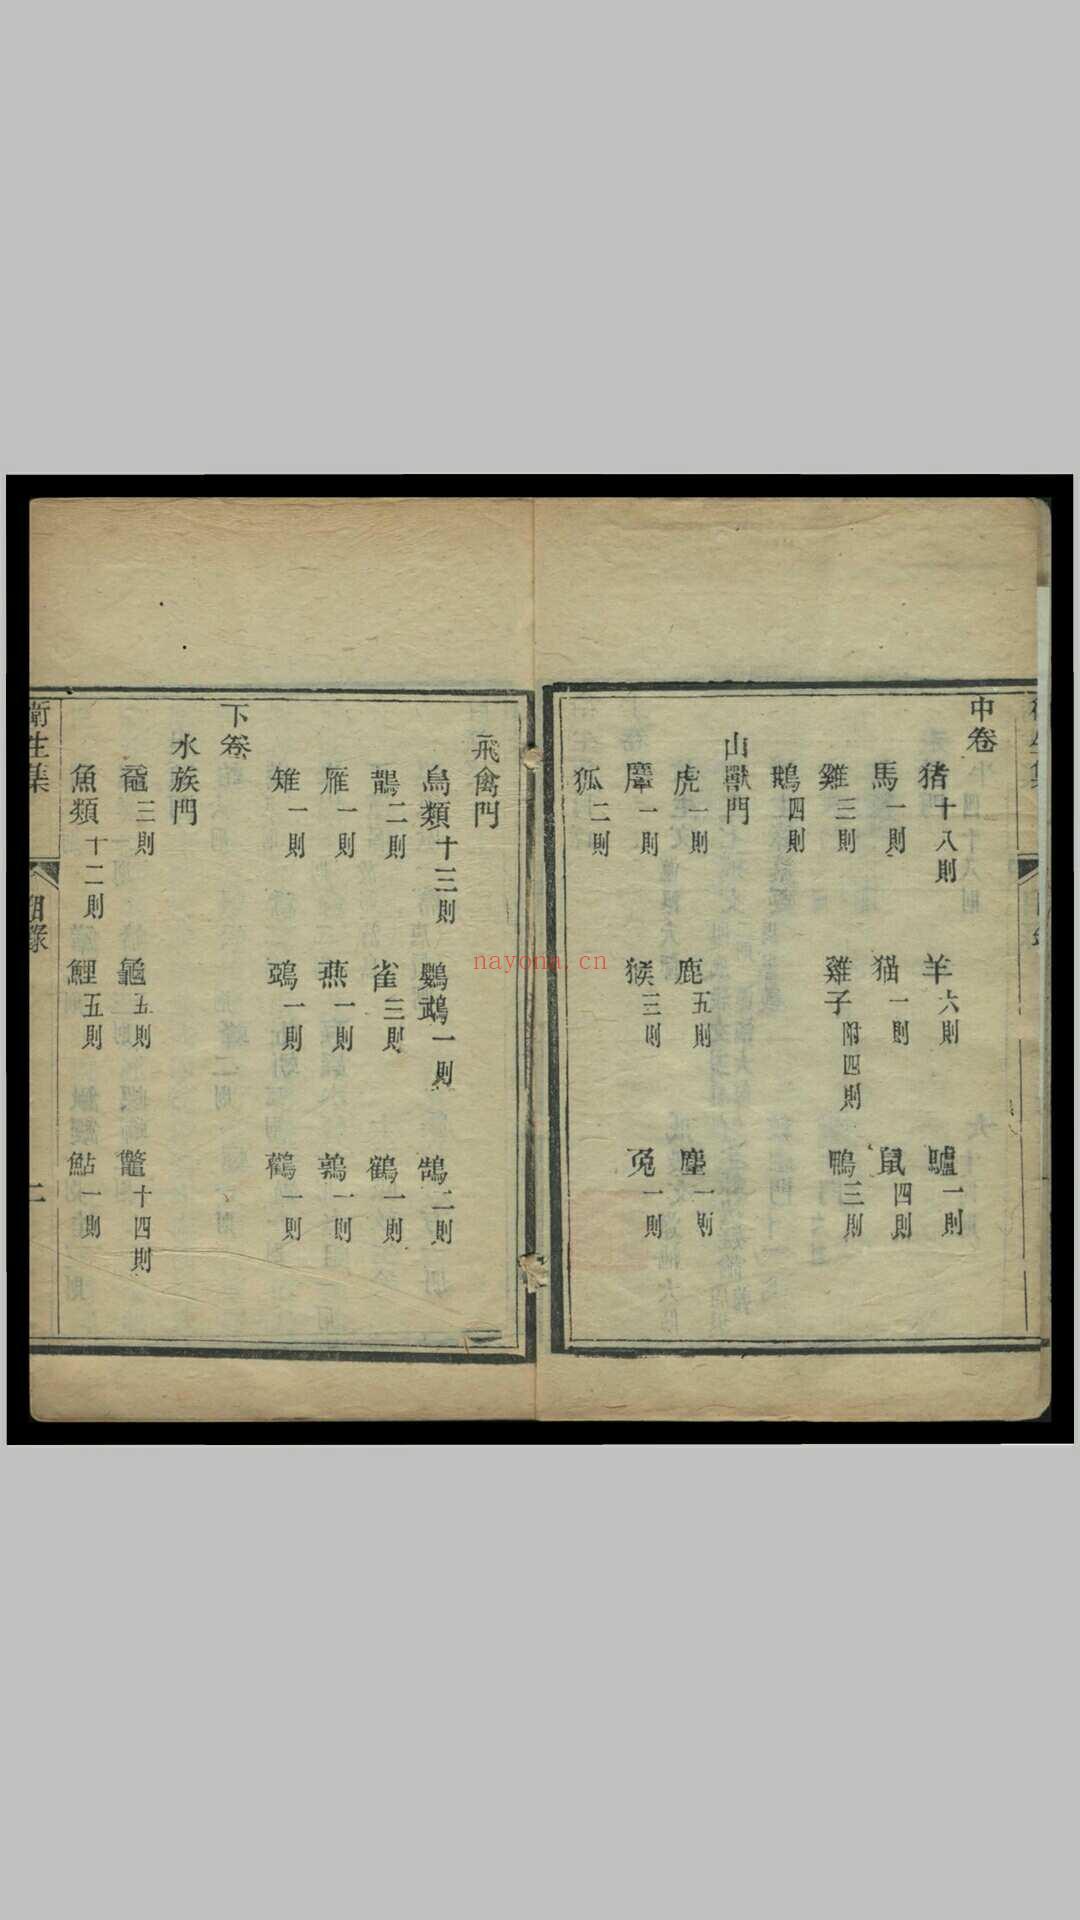 中卷
猪十八則 羊六則 驢一則
馬一則 猫一則 鼠四則
雞三則 雞子附四則 鴨三則
鵝四則
山獸門
虎一則 鹿五則 麈一則
麞一則 猴三則 兔一則
狐二則
飛禽門
鳥類十三則 鸚鵡一則 鵠二則
鵲二則 雀三則 鶴一則
雁一則 燕一則 鶉一則
雉一則 鴞一則 鸛一則
下卷
水族門
黿三則 龜五則 鼈十四則
魚類十二則 鯉五則 鮎一則
衛生集 目錄 二
nayona.cn